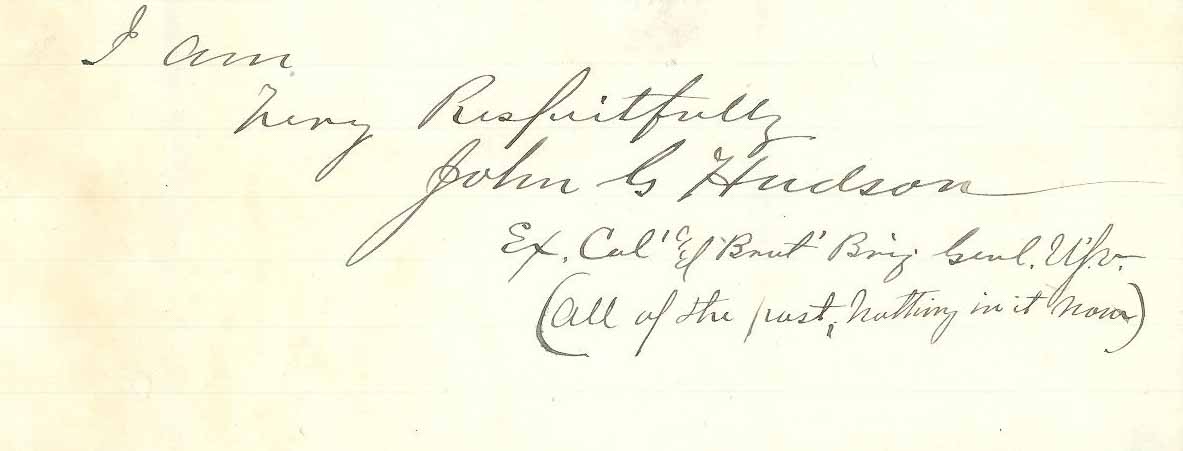 I am
Very Respectfully
John G Hudson
Ex. Col' & Brvt' Brig Genl. U.S.V.
(All of the past, nothing in it now)